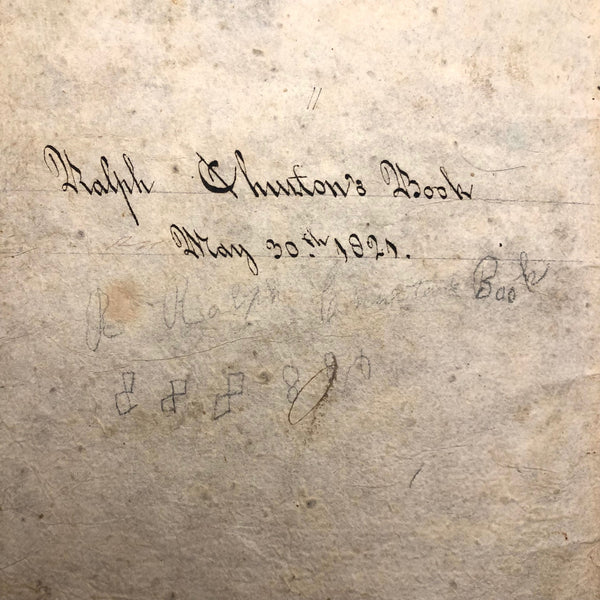 Ralph Churton's Book
May 30th 1821.
R Ralph Churtons Book
8 8 8 8